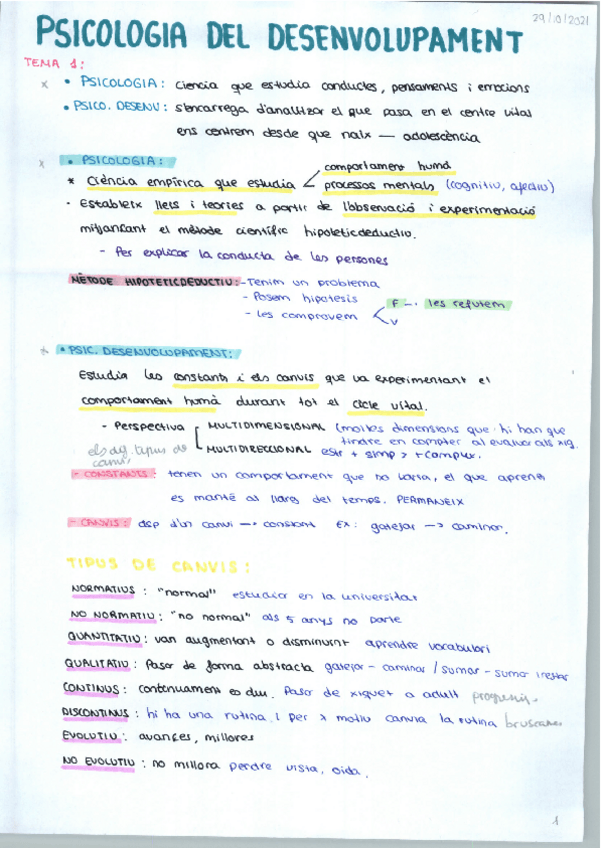 29/10/2021
PSICOLOGIA DEL DESENVOLUPAMENT
TEMA 1:
x • PSICOLOGIA: ciencia que estudia conductes, pensaments i emocions
• PSICO. DESENV: s'encarrega d'analitzar el que pasa en el centre vital
ens centrem desde que naix — adolescència
x • PSICOLOGIA:
* Ciència empírica que estudia < comportament humà
processos mentals (cognitiu, afectiu)
· Estableix lleis i teories a partir de l'observació i experimentació
mitjançant el mètode científic hipoteticdeductiu.
- Per explicar la conducta de les persones
MÈTODE HIPOTETICDEDUCTIU: - Tenim un problema
- Posem hipotesis
- Les comprovem < F —. les refutem
V
x • PSIC. DESENVOLUPAMENT:
Estudia les constants i els canvis que va experimentant el
comportament humà durant tot el cicle vital.
- Perspectiva [ MULTIDIMENSIONAL (moltes dimensions que hi han que
tindre en compter al evaluar als xig.
els dif. tipus de MULTIDIRECCIONAL estr + simp > + compux.
canvi
- CONSTANTS: tenen un comportament que no varia, el que aprens
es manté al llarg del temps. PERMANEIX
- CANVIS: dsp d'un canvi —> constant EX: gatejar —> caminar.
TIPUS DE CANVIS:
NORMATIUS: "normal" estudiar en la universitat
NO NORMATIU: "no normal" als 5 anys no parle
QUANTITATIU: van augmentant o disminuint aprendre vocabulari
QUALITATIU: Pasar de forma abstracta gatejar - caminar / sumar - sumar i restar
CONTINUS: continuament es diu. Pasar de xiquet a adult
DISCONTINUS: hi ha una rutina i per x motiu canvia la rutina
EVOLUTIU: avances, millores
NO EVOLUTIU: no millora perdre vista, oida.
1